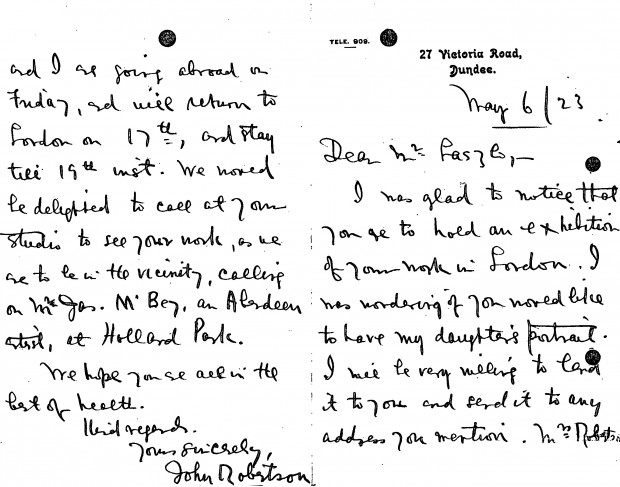 TELE. 909.
27 Victoria Road,
Dundee.
May 6/23
Dear Mr. Laszlo,—
I was glad to notice that
you are to hold an exhibition
of your work in London. I
was wondering if you would like
to have my daughter's portrait.
I will be very willing to lend
it to you and send it to any
address you mention. Mrs Robertson
and I are going abroad on
Friday, and will return to
London on 17th, and stay
till 19th inst. We would
be delighted to call at your
studio to see your work, as we
are to be in the vicinity, calling
on Mr Jas. McBey, an Aberdeen
artist, at Holland Park.
We hope you are all in the
best of health.
Kind regards.
Yours sincerely,
John Robertson